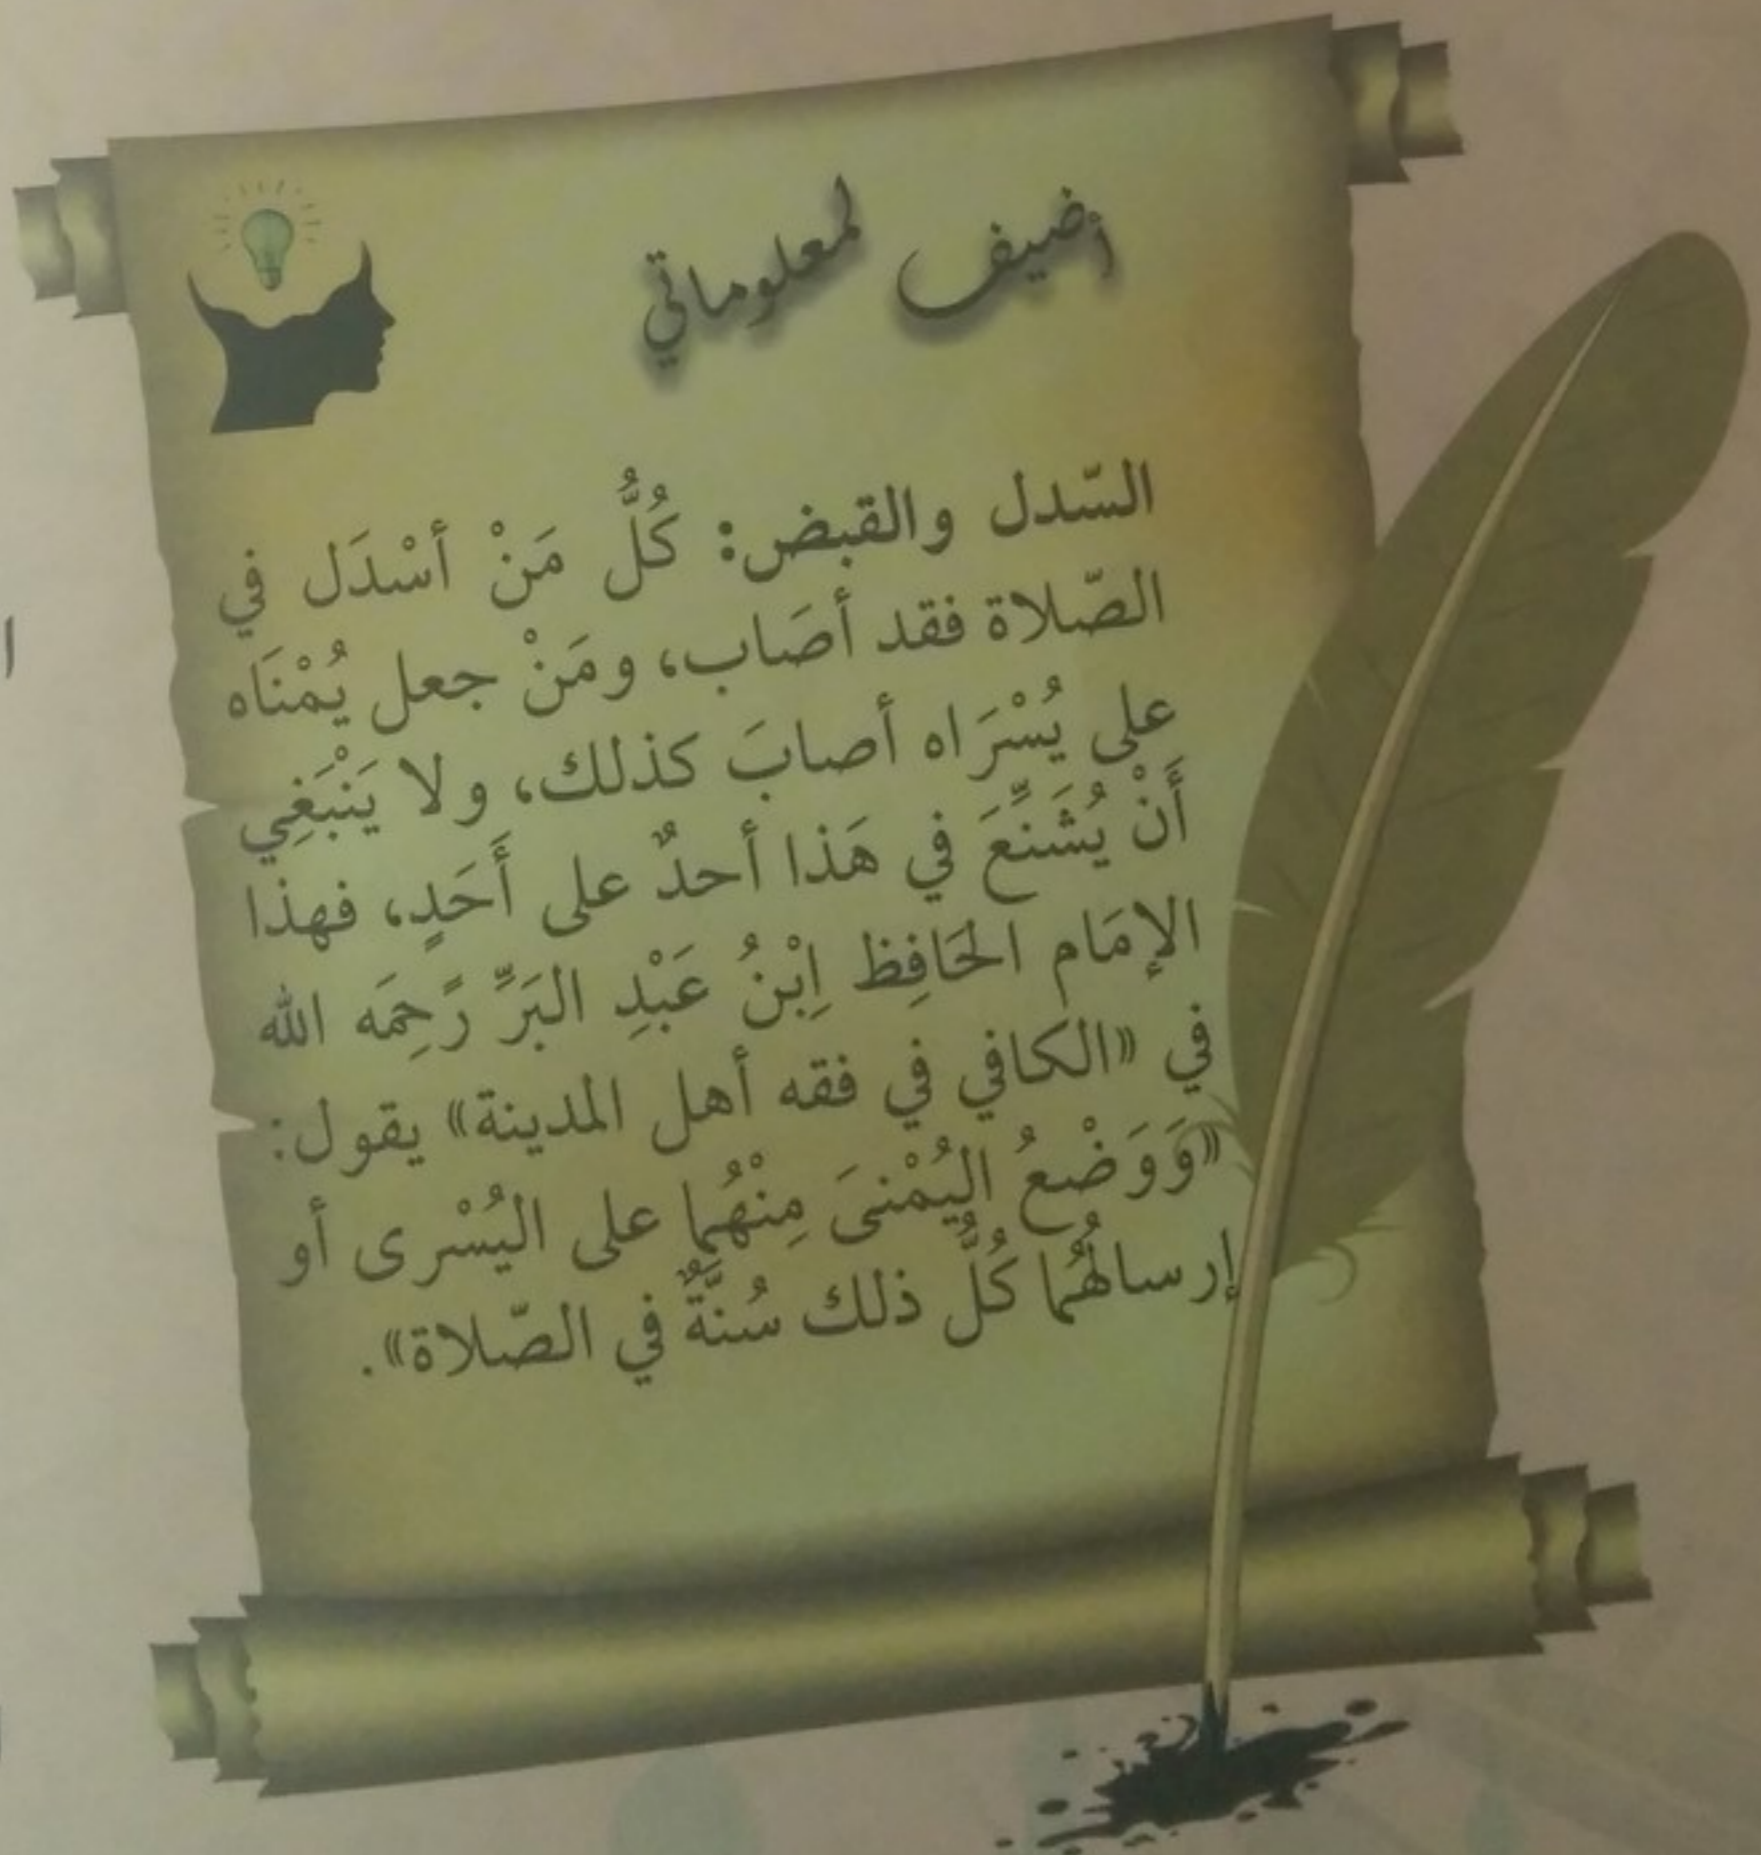 أضيف لمعلوماتي
السّدل والقبض: كُلُّ مَنْ أسْدَل في
الصّلاة فقد أصَاب، ومَنْ جعل يُمْنَاه
على يُسْرَاه أصابَ كذلك، ولا يَنْبَغِي
أَنْ يُشَنِّعَ في هَذا أحدٌ على أَحَدٍ، فهذا
الإمَام الحَافِظ اِبْنُ عَبْدِ البَرِّ رًحِمَه الله
في «الكافي في فقه أهل المدينة» يقول:
«وَوَضْعُ اليُمْنىَ مِنْهُما على اليُسْرى أو
إرسالهُما كُلُّ ذلك سُنَّةٌ في الصّلاة».